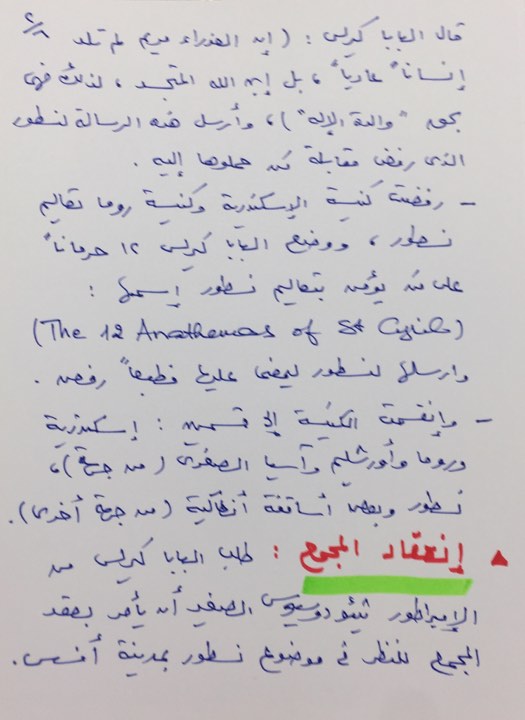 ٤/٨
قال البابا كيرلس : (إن العذراء مريم لم تلد
إنساناً عادياً ، بل إبن الله المتجسد ، لذلك فهى
بحق "والدة الإله") ، وأرسل هذه الرسالة لنسطور
الذى رفض مقابلة من حملوها إليه .
- رفضت كنيسة الإسكندرية وكنيسة روما تعاليم
نسطور ، ووضع البابا كيرلس ١٢ حرماناً
على من يؤمن بتعاليم نسطور إسمها :
(The 12 Anathemas of St Cyril)
وارسلها لنسطور ليمضى عليها فطبعاً رفض .
- وإنقسمت الكنيسة إلى قسمين : إسكندرية
وروما وأورشليم وآسيا الصغرى (من جهة) ،
نسطور وبعض أساقفة أنطاكية (من جهة أخرى) .
▲ إنعقاد المجمع : طلب البابا كيرلس من
الإمبراطور ثيئودوسيوس الصغير أن يأمر بعقد
المجمع للنظر فى موضوع نسطور بمدينة أفسس .